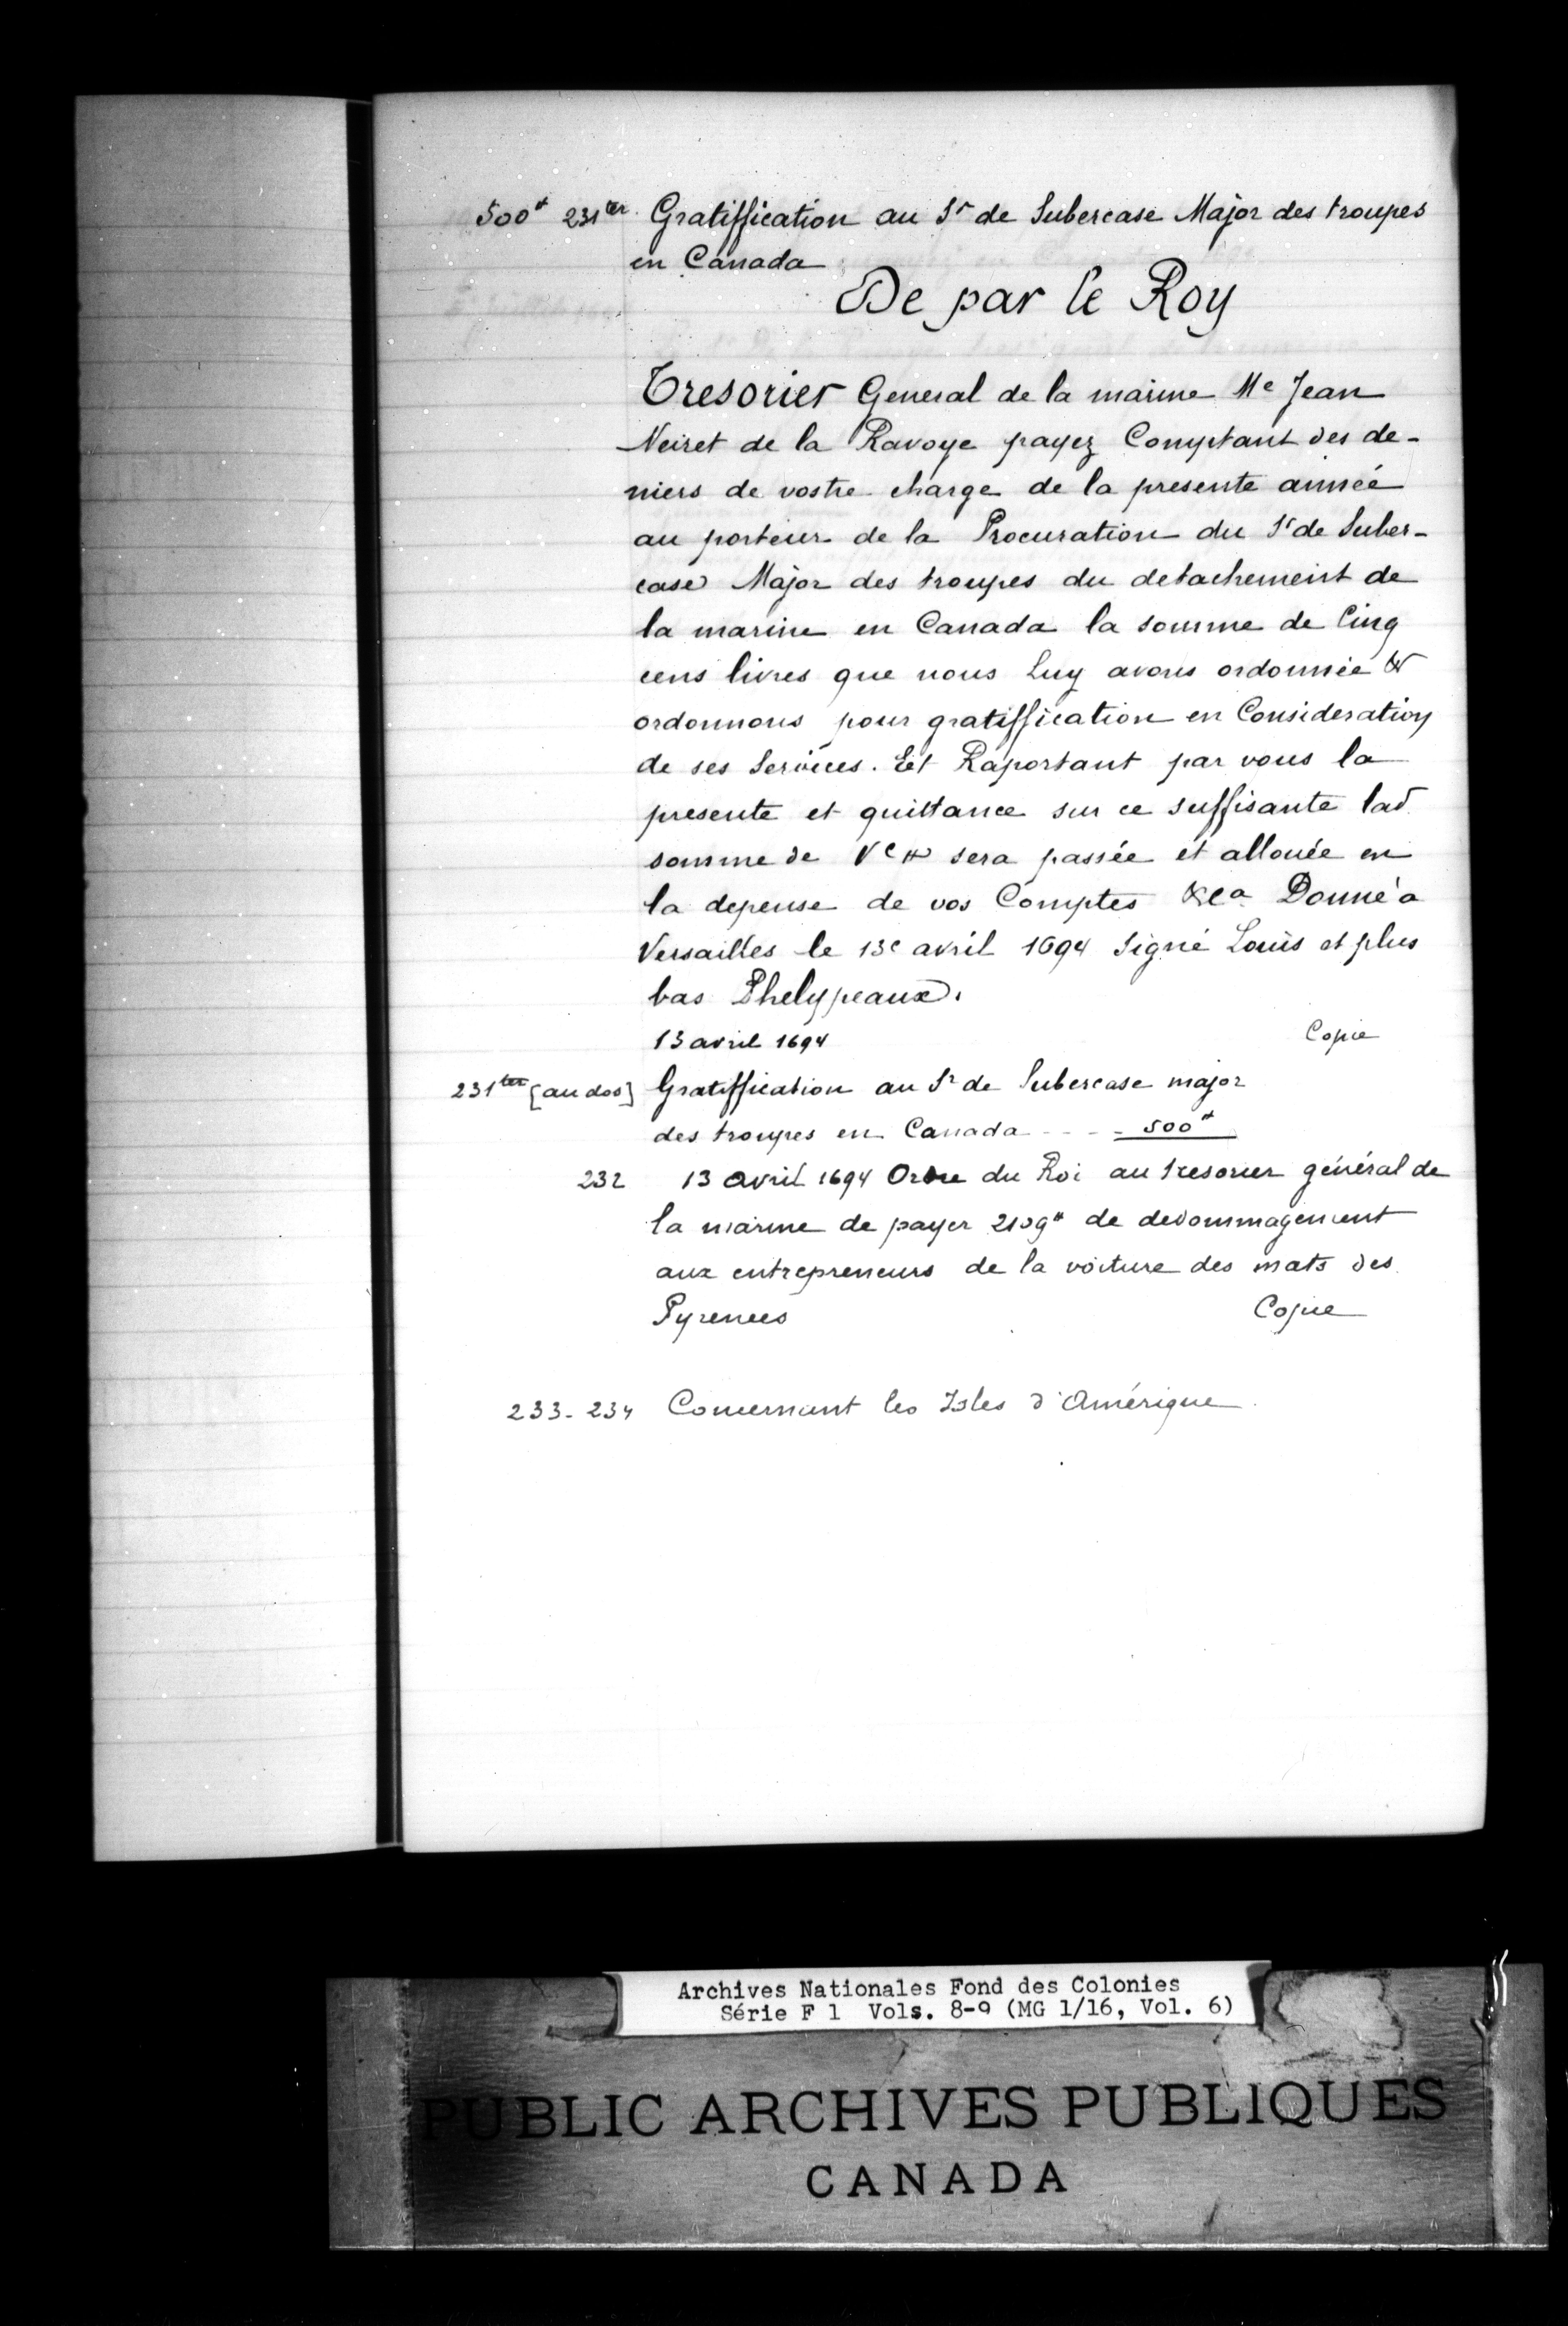 500# 231ter Gratiffication au Sr de Subercase Major des troupes
en Canada
De par le Roy
Tresorier General de la marine Me Jean
Neiret de la Ravoye payez Comptant des de-
niers de vostre charge de la presente année
au porteur de la Procuration du Sr de Suber-
case Major des troupes du detachement de
la marine en Canada la somme de Cinq
cens livres que nous Luy avons ordonnée &
ordonnons pour gratiffication en Consideration
de ses Services. Et Raportant par vous la
presente et quittance sur ce suffisante lad
somme de Vc # sera passée et allouée en
la depense de vos Comptes &ca Donné a
Versailles le 13e avril 1694 Signé Louis et plus
bas Phelypeaux.
13 avril 1694 Copie
231ter [au dos] Gratiffication au Sr de Subercase major
des troupes en Canada - - - - 500#
232 13 avril 1694 Ordre du Roi au tresorier général de
la marine de payer 2109# de dedommagement
aux entrepreneurs de la voiture des mats des
Pyrenees Copie
233-234 Concernant les Isles d'Amérique
Archives Nationales Fond des Colonies
Série F 1 Vols. 8-9 (MG 1/16, Vol. 6)
PUBLIC ARCHIVES PUBLIQUES
CANADA